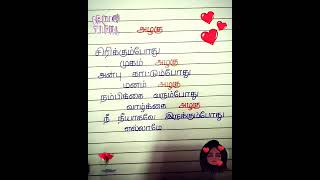 அழகு
சிரிக்கும்போது
முகம் அழகு
அன்பு காட்டும்போது
மனம் அழகு
நம்பிக்கை வரும்போது
வாழ்க்கை அழகு
நீ நீயாகவே இருக்கும்போது
எல்லாமே